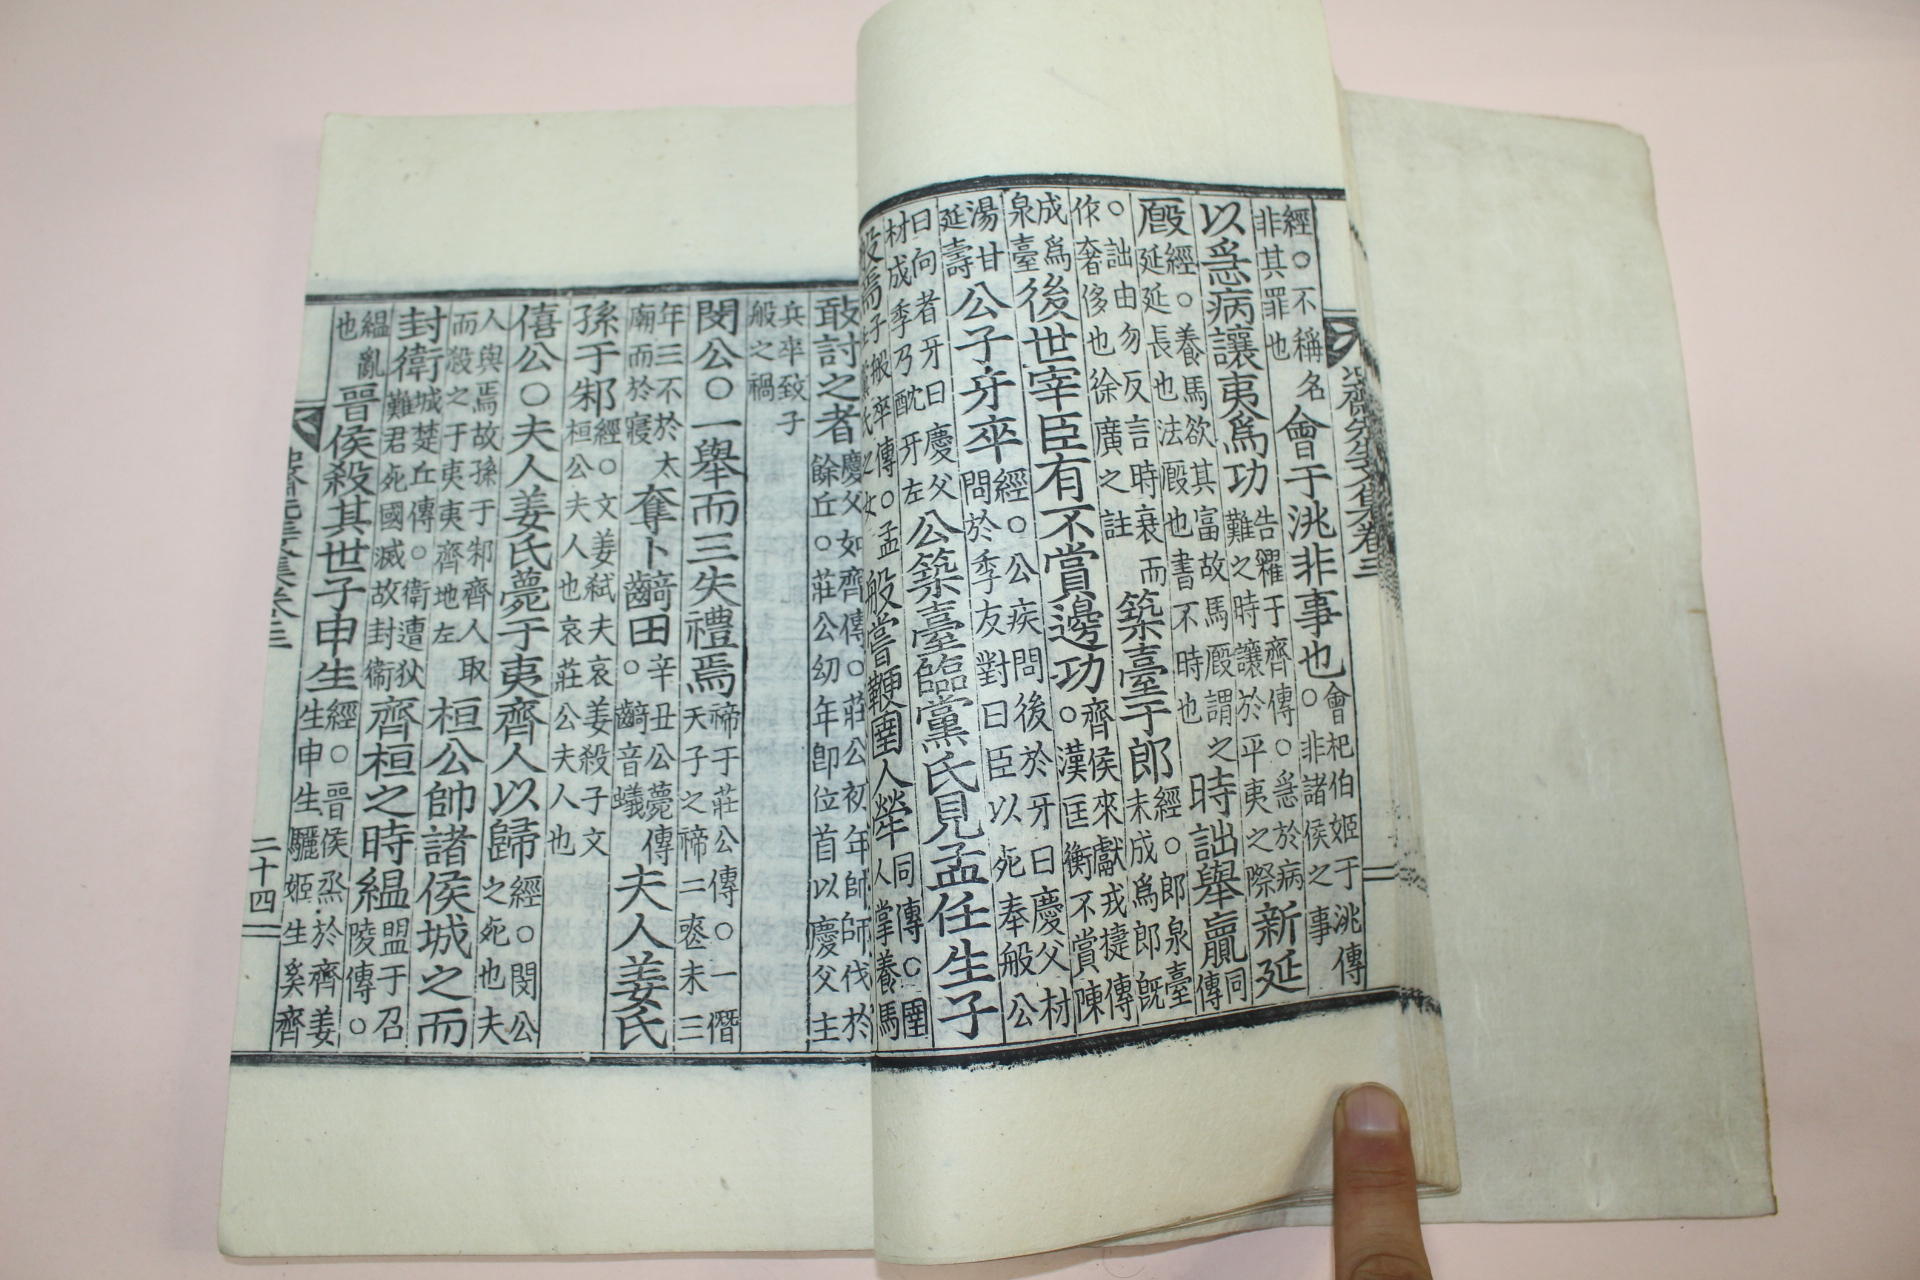 齋先生文集卷三
經○不稱名
非其罪也
會于洮非事也
會杞伯姬于洮傳
○非諸侯之事
以急病讓夷爲功
告糴于齊傳○急於病
難之時讓於平夷之際
新延
廄
經○養馬欲其富故馬廄謂之
延延長也法廄也書不時也
時詘舉贏
同
傳
○詘由勿反言時衰而
作奢侈也徐廣之註
築臺于郎
經○郎泉臺
未成爲郎旣
成爲
泉臺
後世宰臣有不賞邊功
齊侯來獻戎捷傳
○漢匡衡不賞陳
湯甘
延壽
公子牙卒
經○公疾問後於牙曰慶父材
問於季友對曰臣以死奉般公
曰向者牙曰慶父
材成季乃酖牙左
公築臺臨黨氏見孟任生子
般焉
子般卒傳○孟
任黨氏之女
般嘗鞭圉人犖
同傳○圉
人掌養馬
敢討之者
慶父如齊傳○莊公初年師師伐於
餘丘○莊公幼年卽位首以慶父主
兵卒致子
般之禍
閔公○一舉而三失禮焉
禘于莊公傳○一僭
天子之禘二喪未三
年三不於太
廟而於寢
奪卜齮田
辛丑公薨傳
○齮音蟻
夫人姜氏
孫于邾
經○文姜弒夫哀姜殺子文
桓公夫人也哀莊公夫人也
僖公○夫人姜氏薨于夷齊人以歸
經○閔公
之死也夫
人與焉故孫于邾齊人取
而殺之于夷夷齊地左
桓公帥諸侯城之而
封衛
城楚丘傳○衛遭狄
難君死國滅故封衛
齊桓之時縕
盟于召
陵傳○
縕亂
也
晉侯殺其世子申生
經○晉侯烝於齊姜
生申生驪姬生奚齊
齋先生文集卷三
二十四